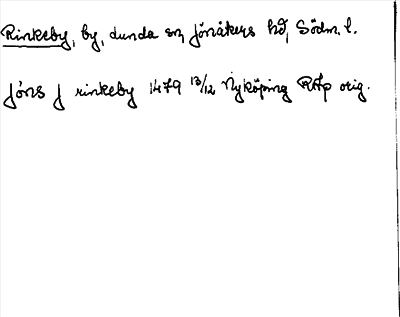 Rinkeby, by, Lunda sn, Jönåkers hd, Södm. l.
jöns j rinkeby 1479 13/12 Nyköping RAp orig.